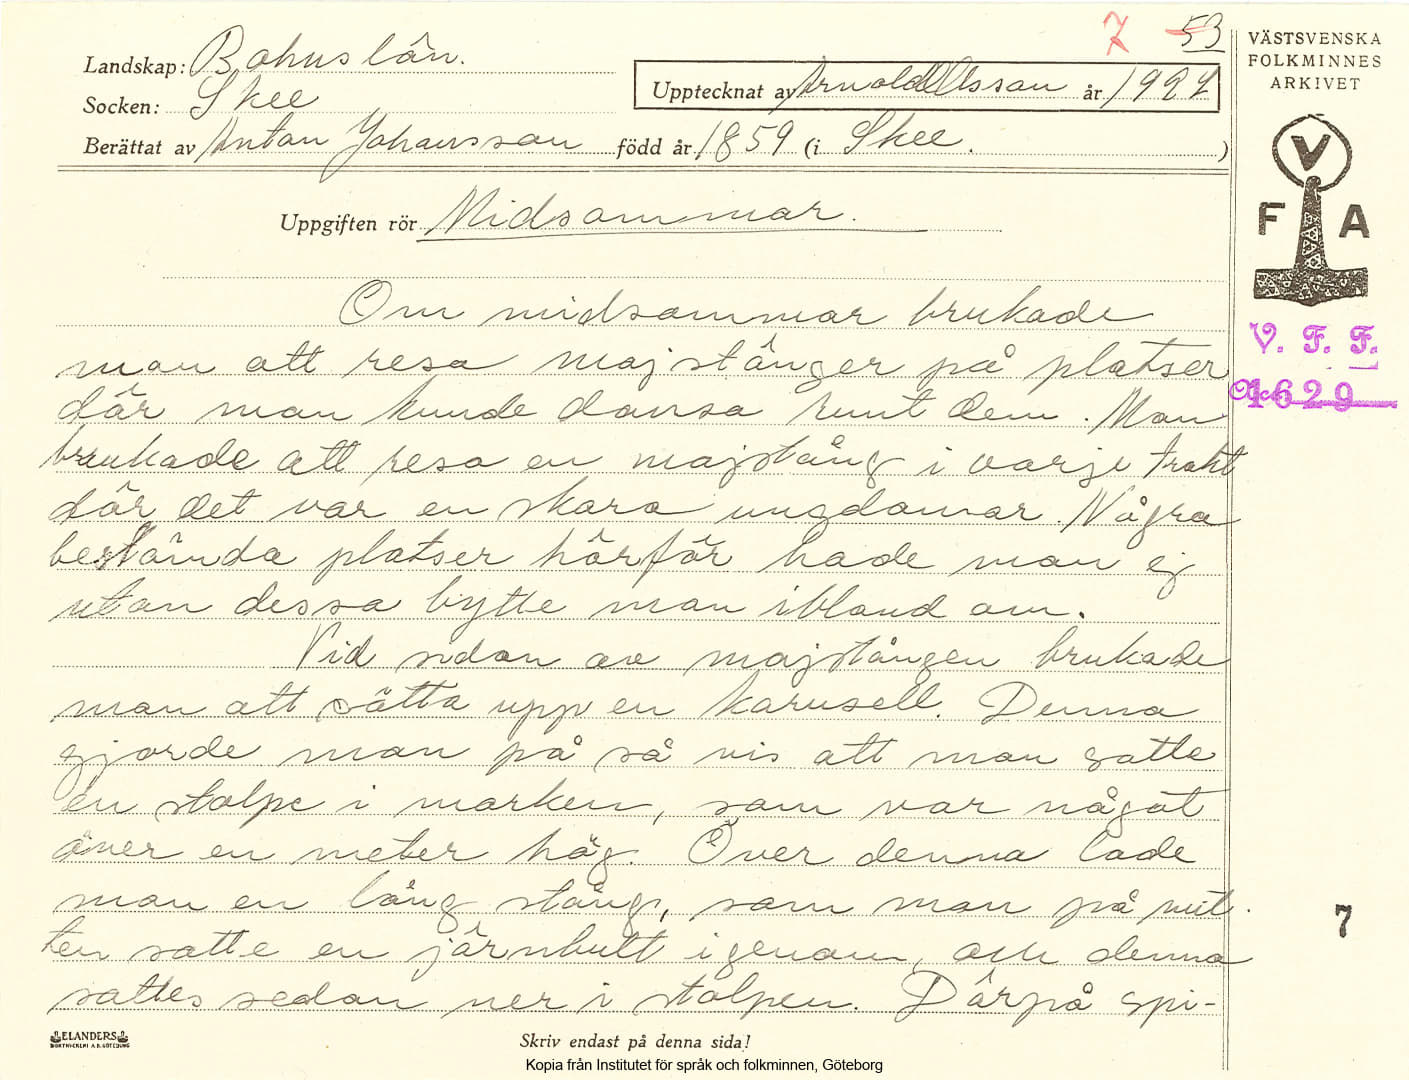 7 53
Landskap: Bohuslän.
Socken: Skee
Upptecknat av Arnold Olsson år 1927
Berättat av Anton Johansson född år 1859 (i Skee. )
Uppgiften rör Midsommar.
Om midsommar brukade
man att resa majstänger på platser
där man kunde dansa runt dem. Man
brukade att resa en majstång i varje trakt
där det var en skara ungdomar. Några
bestämda platser härför hade man ej
utan dessa bytte man ibland om.
Vid sidan av majstången brukade
man att sätta upp en karusell. Denna
gjorde man på så vis att man satte
en stolpe i marken, som var något
över en meter hög. Över denna lade
man en lång stång, som man på mit-
ten satte en järnbult igenom, och denna
sattes sedan ner i stolpen. Därpå spi-
VÄSTSVENSKA
FOLKMINNES
ARKIVET
V
F A
V. F. F.
Acc 1629
7
ELANDERS
BOKTRYCKERI A.B. GÖTEBORG
Skriv endast på denna sida!
Kopia från Institutet för språk och folkminnen, Göteborg